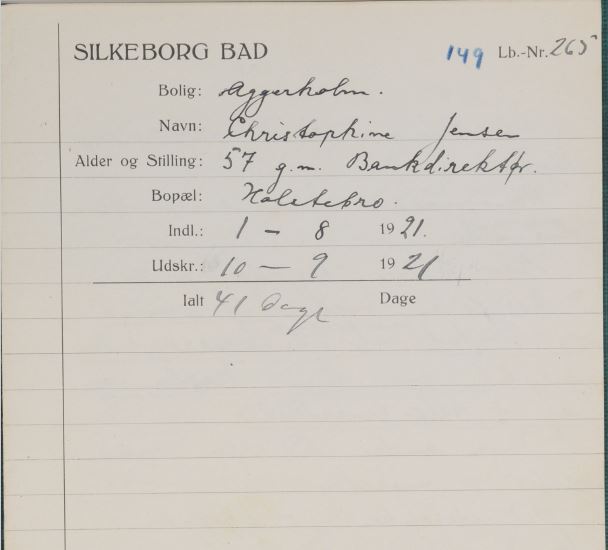 SILKEBORG BAD 149 Lb.-Nr. 265
Bolig: Aggerholm.
Navn: Christophine Jensen
Alder og Stilling: 57 g.m. Bankdirektør.
Bopæl: Holstebro.
Indl.: 1 - 8 1921.
Udskr.: 10 - 9 1921
Ialt 41 Dage Dage